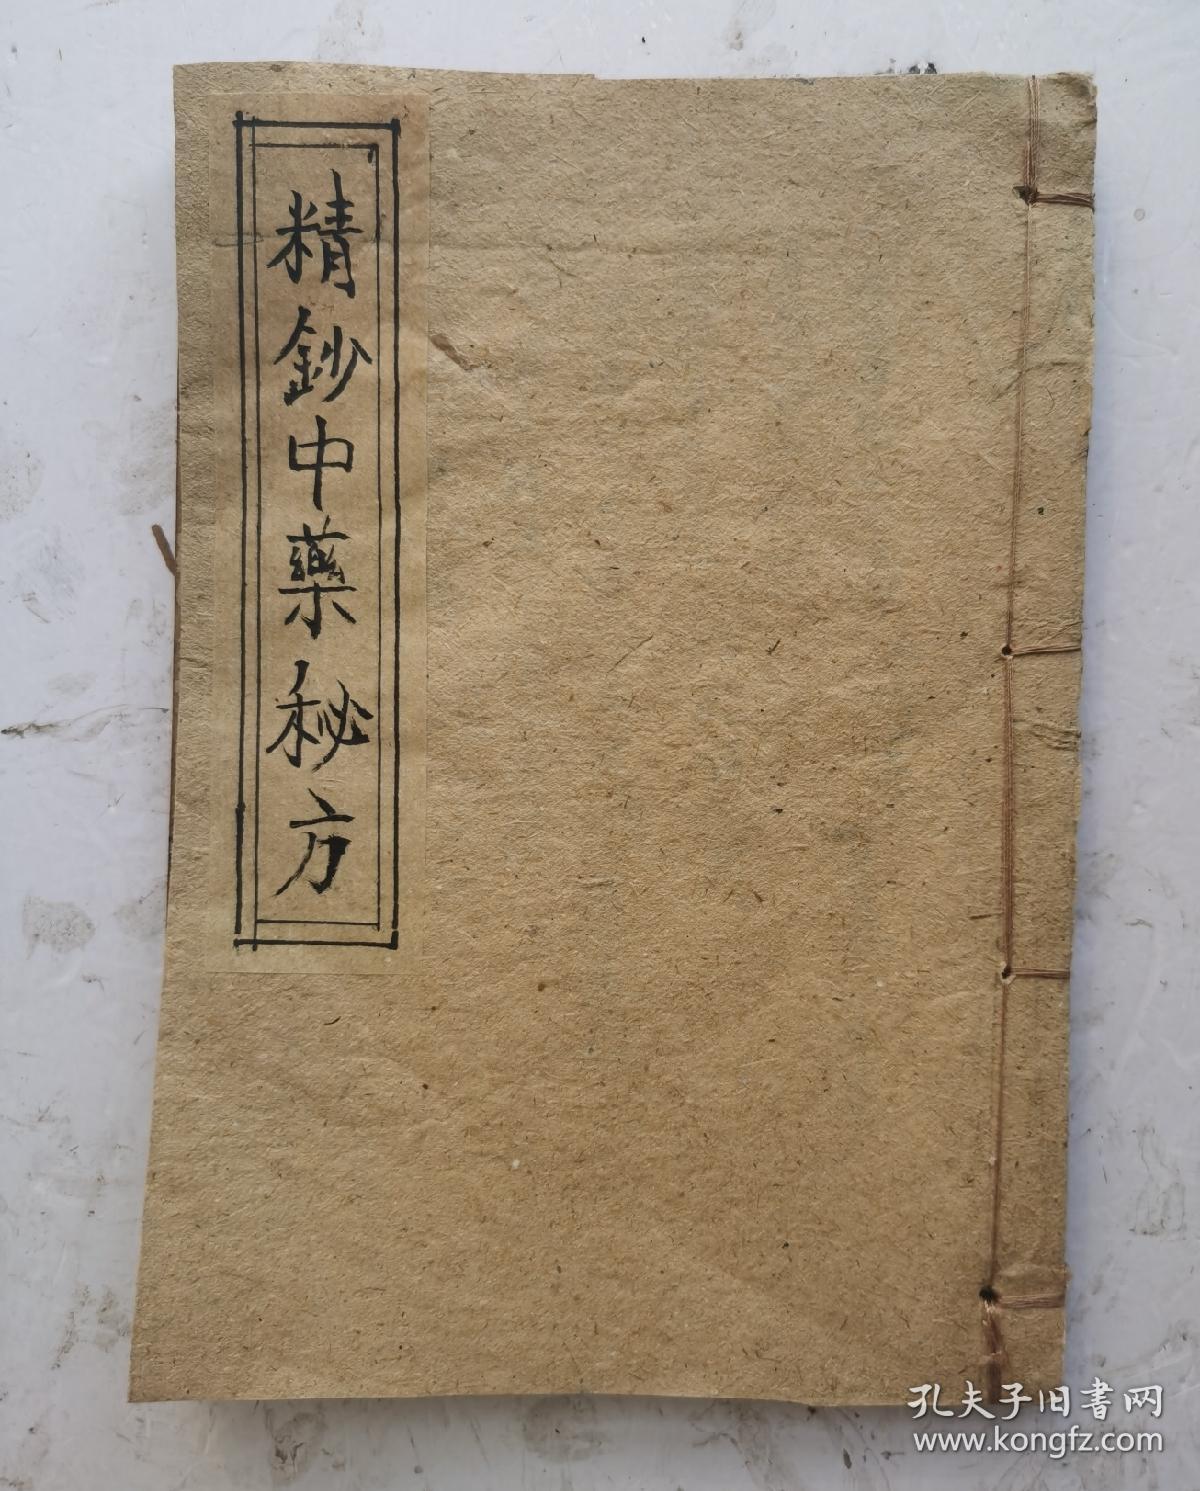 精鈔中藥秘方
孔夫子旧書网
www.kongfz.com